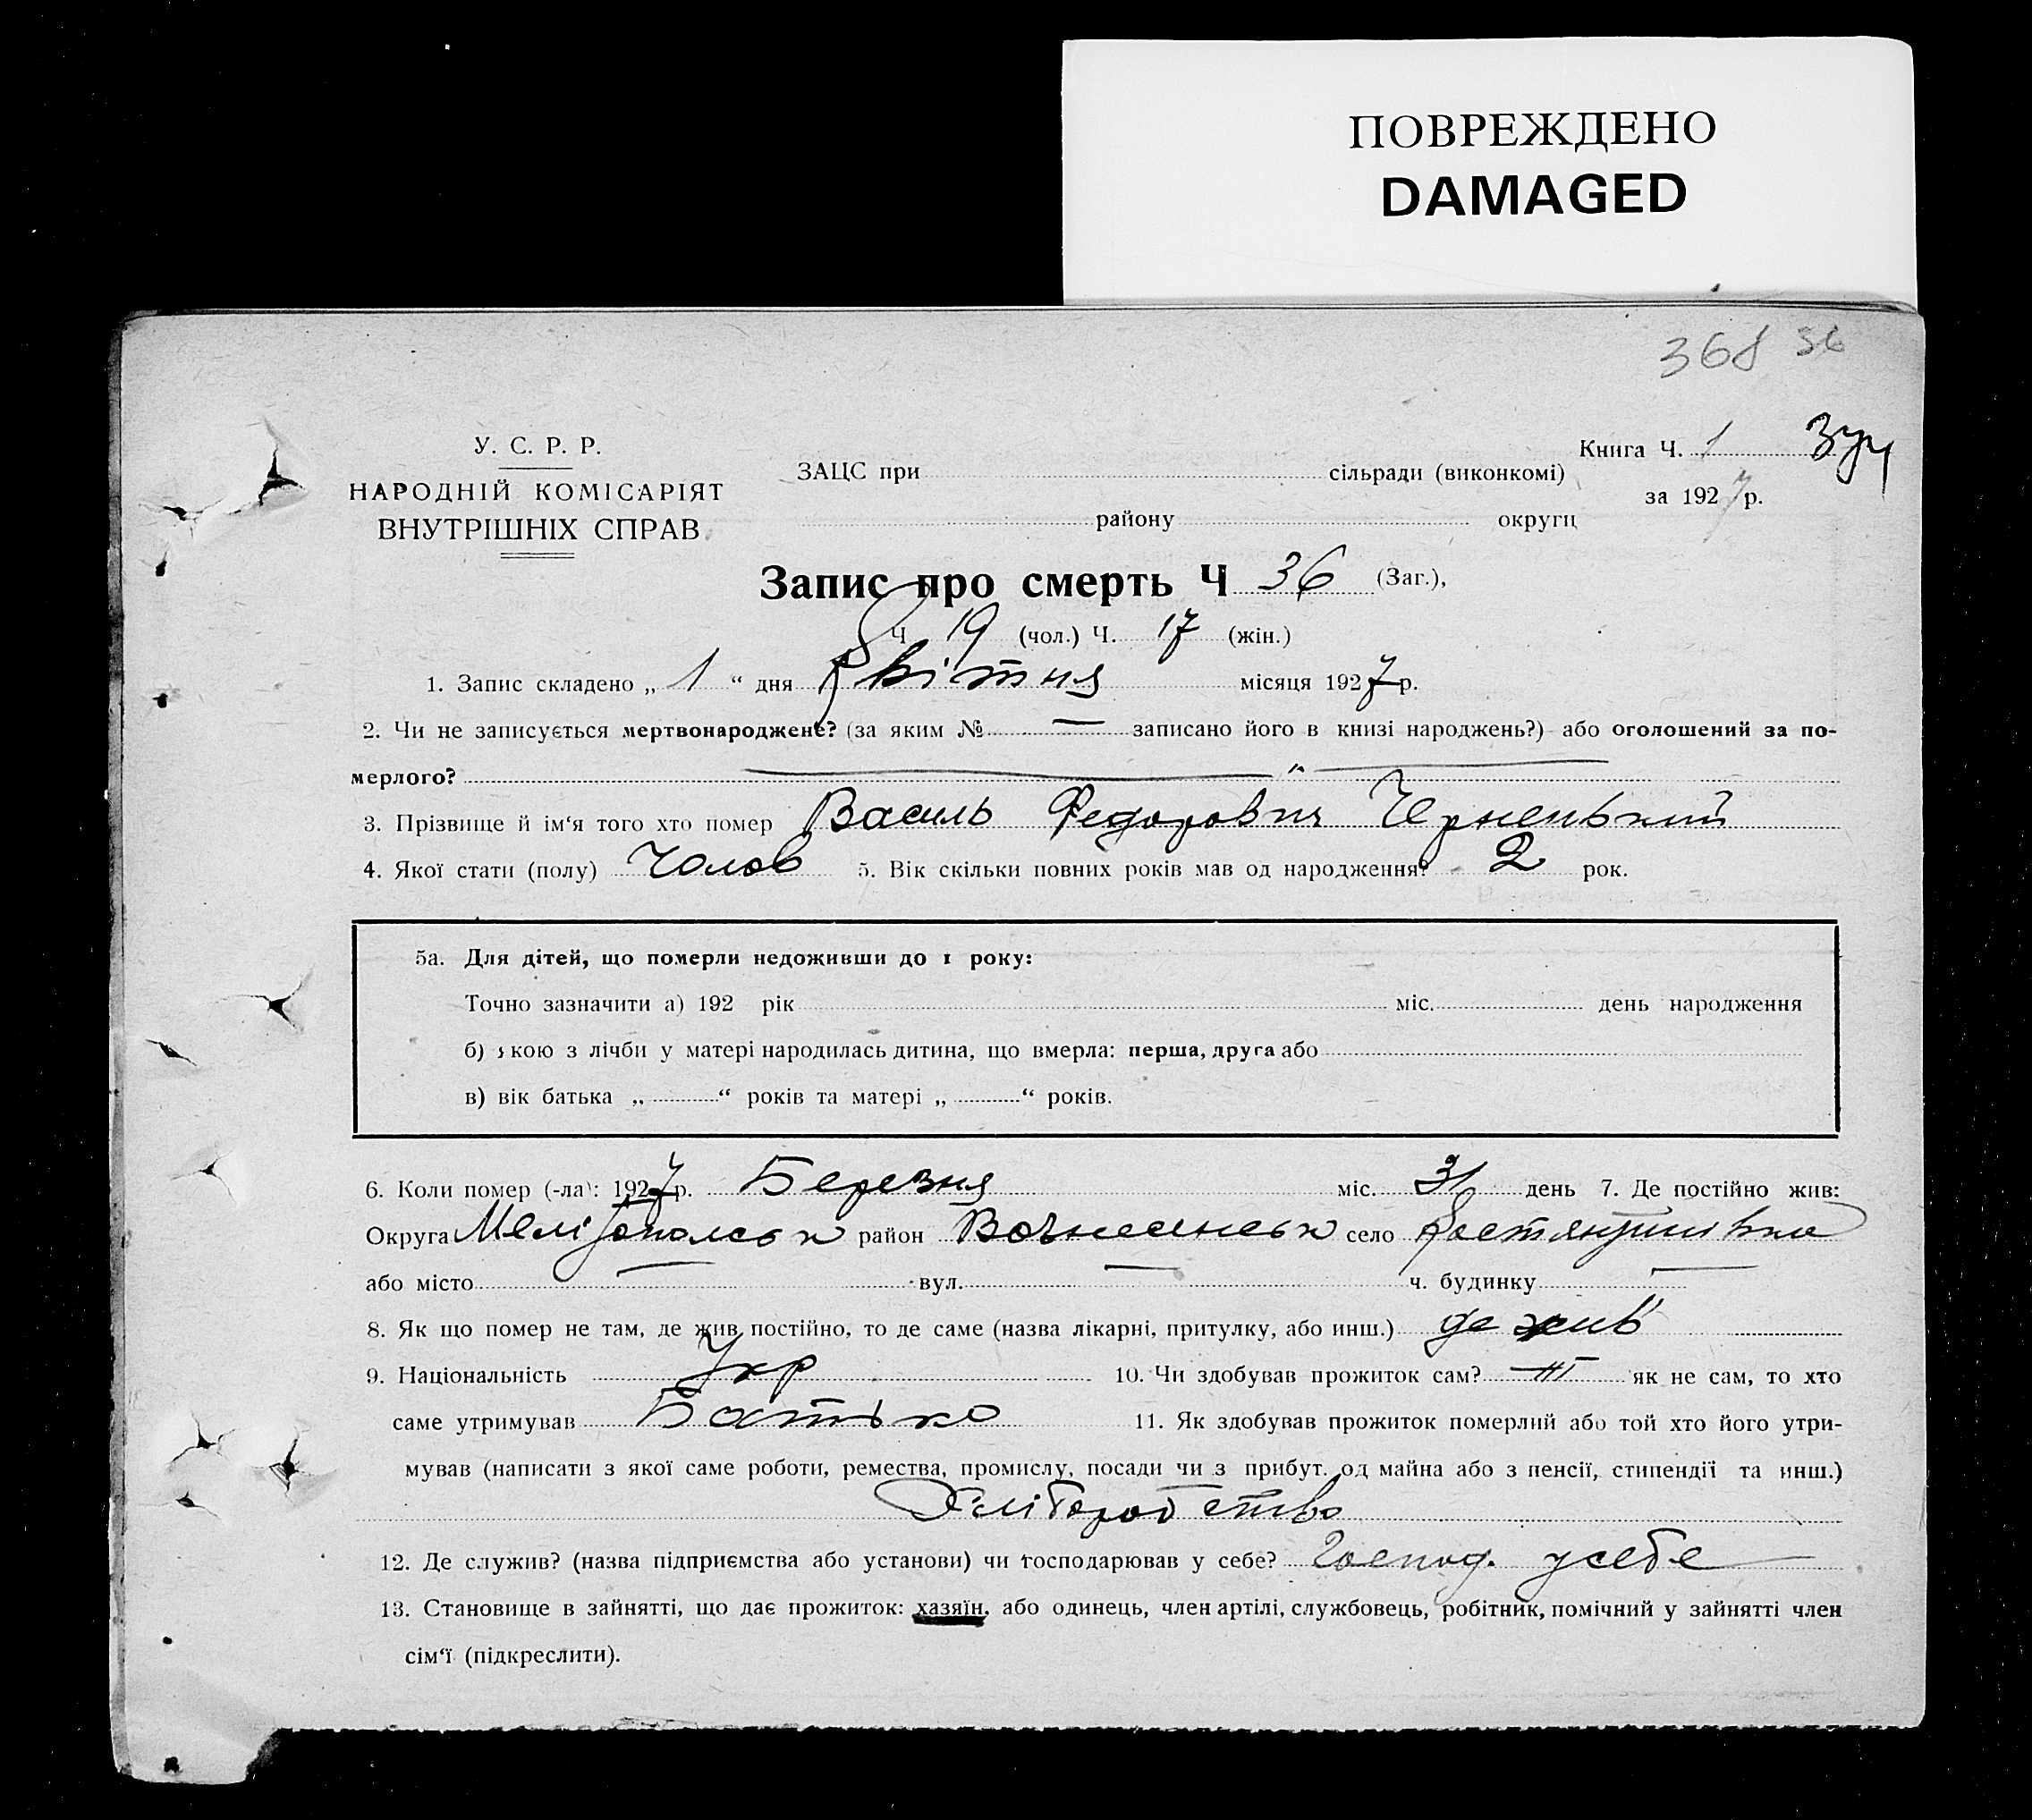 ПОВРЕЖДЕНО
DAMAGED
368 36
У. С. Р. Р.
НАРОДНІЙ КОМІСАРІЯТ
ВНУТРІШНІХ СПРАВ
Книга Ч. 1
ЗАЦС при сільради (виконкомі)
за 1927 р.
району округи
Запис про смерть Ч 36 (Заг.),
Ч 19 (чол.) Ч. 17 (жін.)
1. Запис складено „ 1 “ дня Квітня місяця 1927 р.
2. Чи не записується мертвонароджене? (за яким № — записано його в книзі народжень?) або оголошений за по-
мерлого? — „ —
3. Прізвище й ім‘я того хто помер Василь Федорович Черненький
4. Якої стати (полу) Чолов 5. Вік скільки повних років мав од народження? 2 рок.
5а. Для дітей, що померли недоживши до 1 року:
Точно зазначити а) 192 рік міс. день народження
б) якою з лічби у матері народилась дитина, що вмерла: перша, друга або
в) вік батька „ “ років та матері „ “ років.
6. Коли помер (-ла): 1927 р. Березня міс. 31 день 7. Де постійно жив:
Округа Мелітопольськ район Вознесенськ село
або місто — вул. — ч. будинку —
8. Як що помер не там, де жив постійно, то де саме (назва лікарні, притулку, або инш.) де жив
9. Національність Укр 10. Чи здобував прожиток сам? як не сам, то хто
саме утримував Батько 11. Як здобував прожиток померлий або той хто його утри-
мував (написати з якої саме роботи, ремества, промислу, посади чи з прибут. од майна або з пенсії, стипендії та инш.)
Хліборобство
12. Де служив? (назва підприємства або установи) чи господарював у себе? Господ. у себе
13. Становище в зайнятті, що дає прожиток: хазяїн, або одинець, член артілі, службовець, робітник, помічний у зайнятті член
сім‘ї (підкреслити).